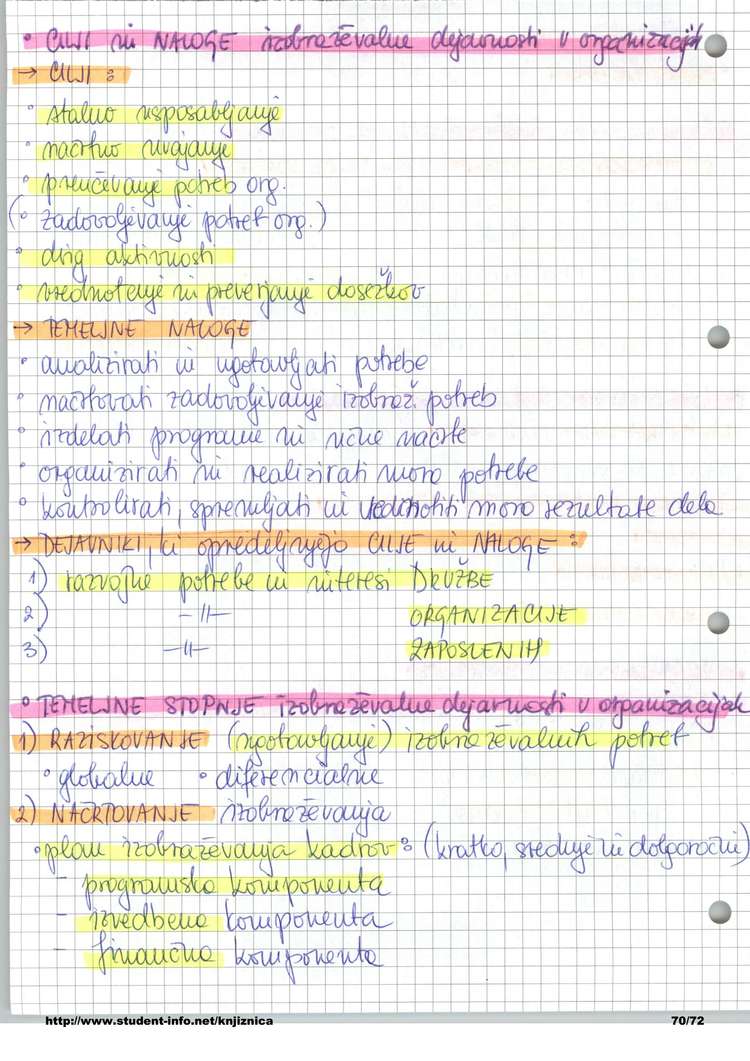 • CILJI in NALOGE izobraževalne dejavnosti v organizacijah
→ CILJI :
• stalno usposabljanje
• načrtno uvajanje
• preučevanje potreb org.
(• zadovoljevanje potreb org.)
• drug aktivnosti
• vrednotenje in preverjanje dosežkov
→ TEMELJNE NALOGE
• analizirati in ugotavljati potrebe
• načrtovati zadovoljevanje izobraž. potreb
• izdelati programe in učne načrte
• organizirati in realizirati potrebe
• kontrolirati, spremljati in vrednotiti rezultate dela
→ DEJAVNIKI, ki opredeljujejo CILJE in NALOGE :
1) razvojne potrebe in interesi DRUŽBE
2) -||- ORGANIZACIJE
3) -||- ZAPOSLENIH
• TEMELJNE STOPNJE izobraževalne dejavnosti v organizacijah
1) RAZISKOVANJE (ugotavljanje) izobraževalnih potreb
• globalne • diferencialne
2) NAČRTOVANJE izobraževanja
• plan izobraževanja kadrov : (kratko, srednje in dolgoročni)
- programska komponenta
- izvedbena komponenta
- finančna komponenta
http://www.student-info.net/knjiznica 70/72